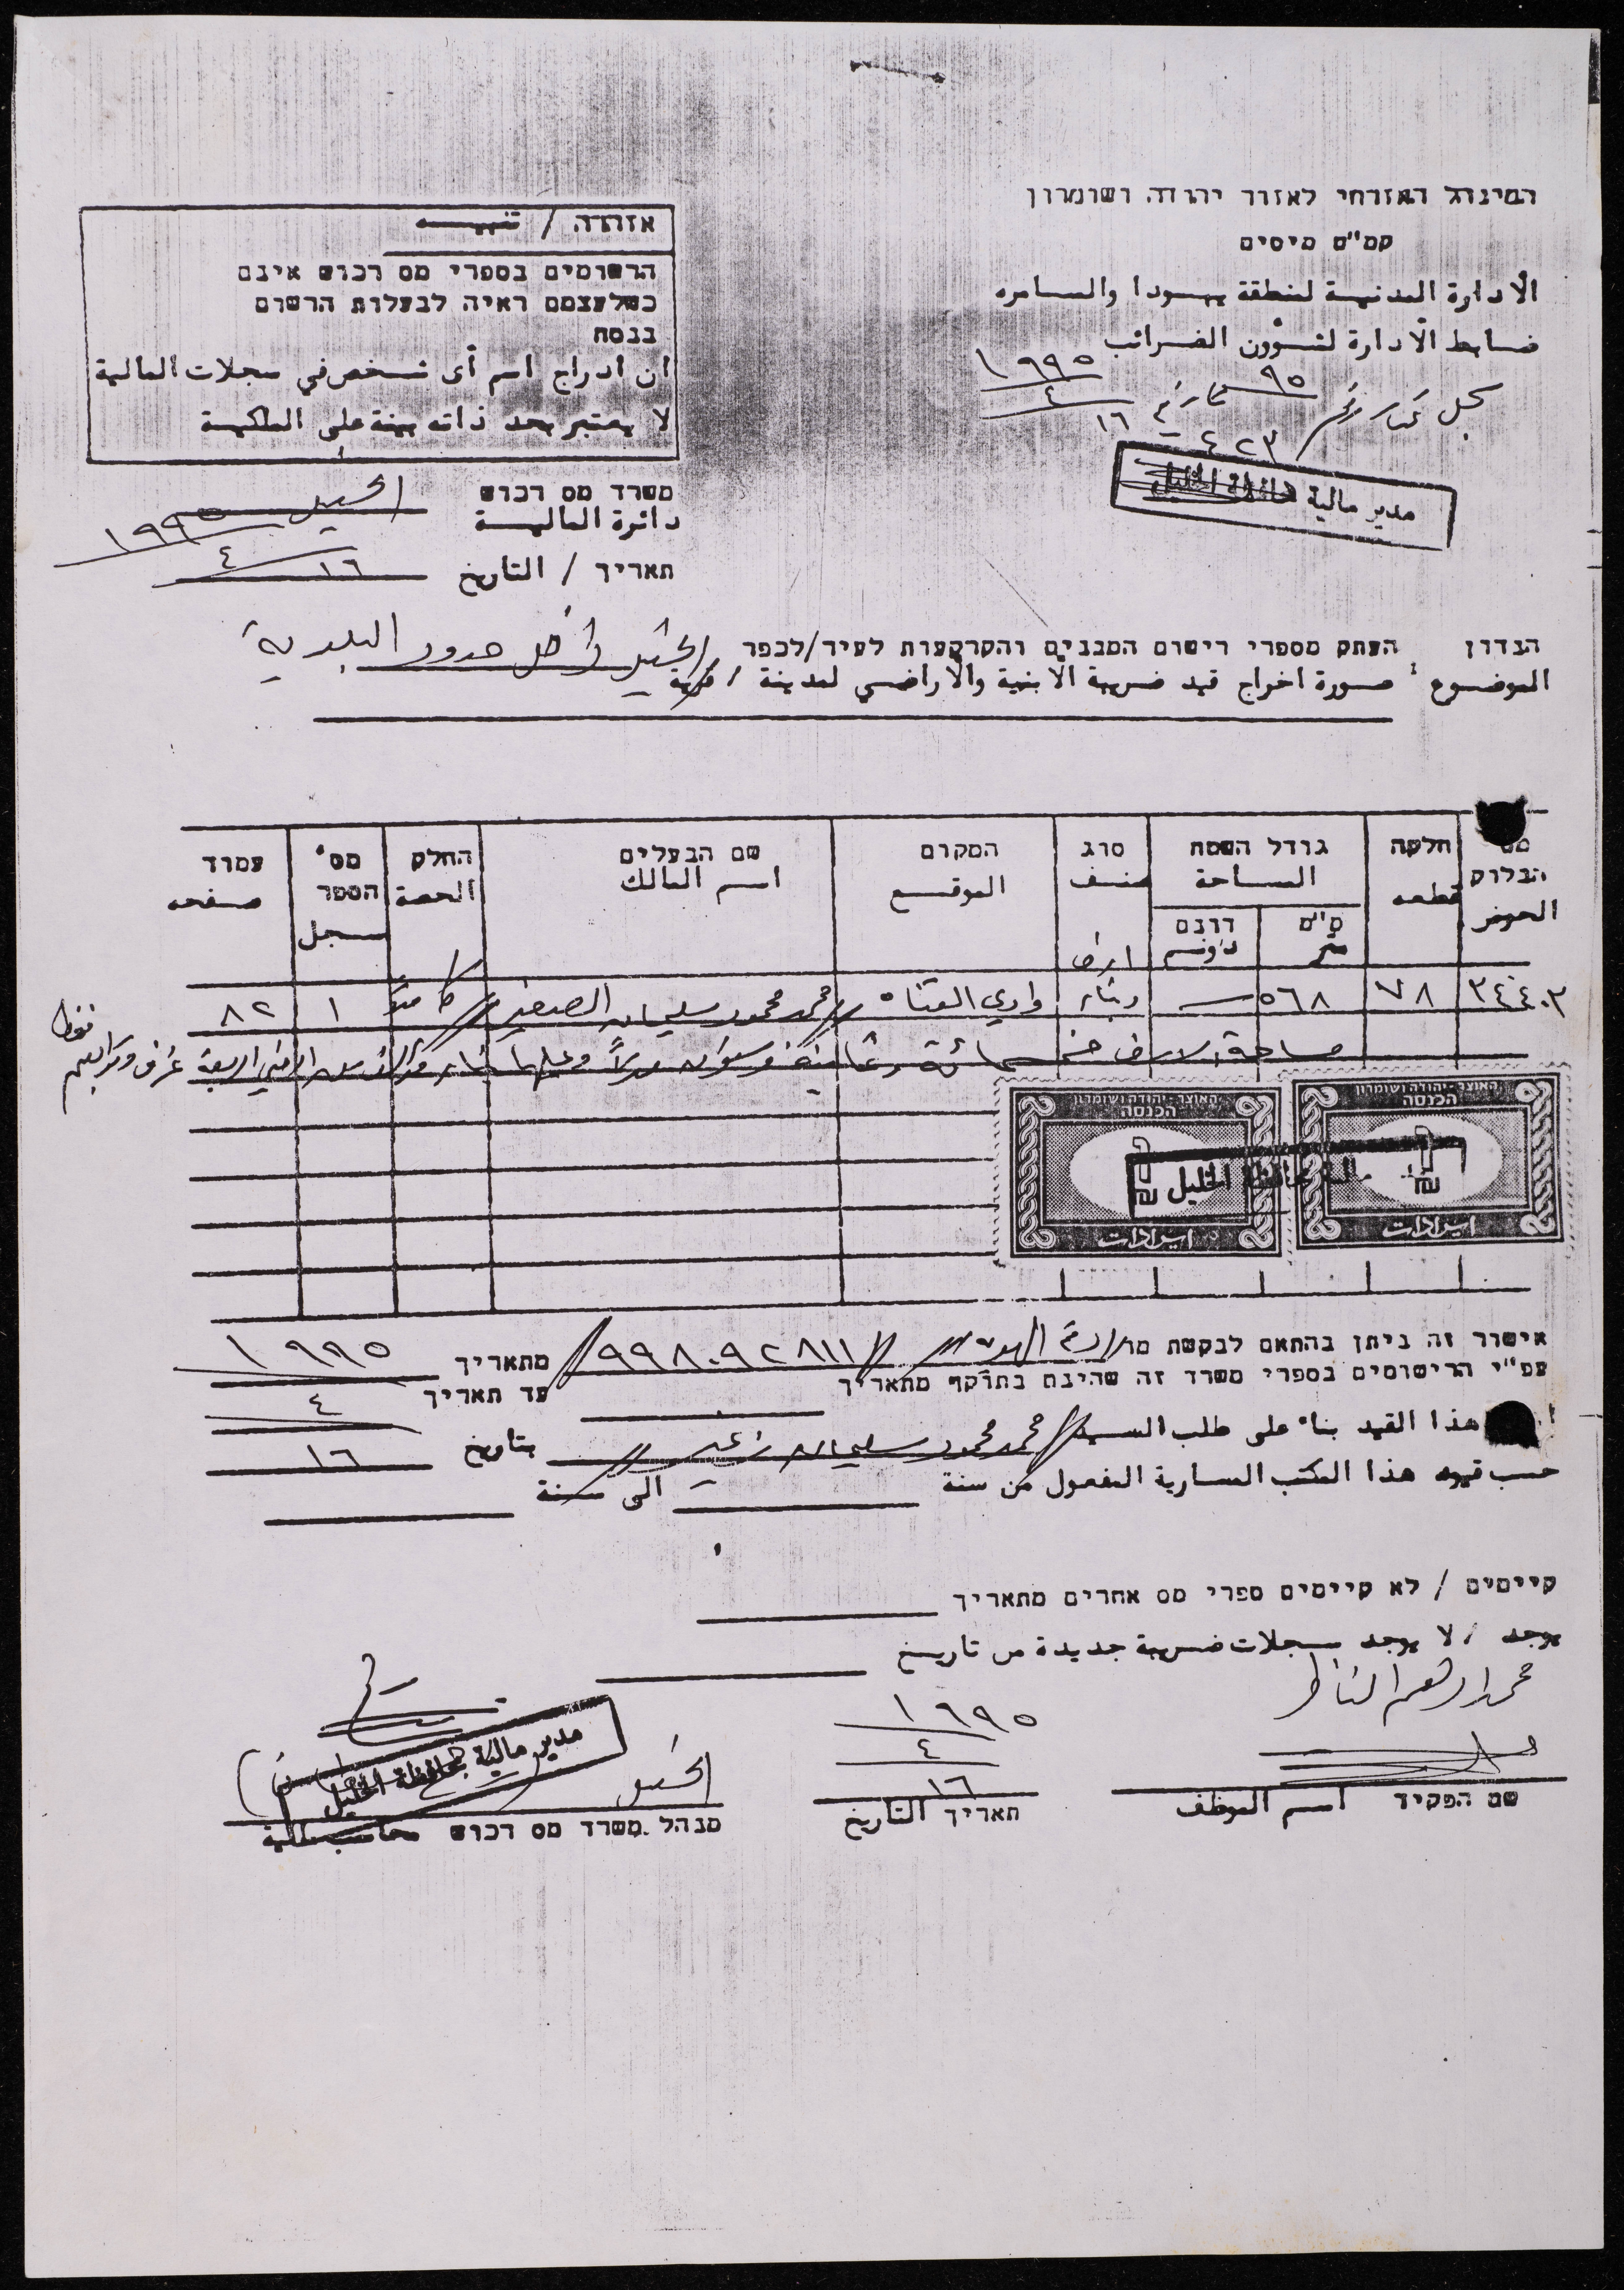 המינהל האזרחי לאזור יהודה ושומרון
קמ"ט מיסים
الادارة المدنية لمنطقة يهودا والسامره
ضابط الادارة لشوون الضرائب
٩٥ تاريخ ١٩٩٥
٤
١٦
مدير مالية محافظة الخليل
אזהרה / تنبيه
הרשומים בספרי מס רכוש אינם
כשלעצמם ראיה לבעלות הרשום
בנסח
ان ادراج اسم أى شخص في سجلات المالية
لا يعتبر بحد ذاته بينة على الملكية
משרד מס רכוש
دائرة المالية الخليل ١٩٩٥
תאריך / التاريخ ١٦ ٤
הנדון העתק מספרי רישום המבנים והקרקעות לעיר/לכפר
الموضوع صورة اخراج قيد ضريبة الابنية والاراضي لمدينة / قرية الخليل داخل حدود البلدية
מס הבלוק الحوض
חלקה قطعه
גודל השטח المساحة
מ"ר متر
דונם دونم
סוג صنف
המקום الموقع
שם הבעלים اسم المالك
החלק الحصة
מס' הספר سجل
עמוד صفحه
ارض
٣٤٤٠٢ ٧٨ ٥٦٨ وبناء وادي القناه محمد محمود سليمان الصغير كاملاً ١ ٨٢
مساحة الارض خمسمائة وثمانية وستون متراً وعليها بناء
האוצר-יהודה ושומרון
הכנסה
ايرادات
האוצר-יהודה ושומרון
הכנסה
ايرادات
مالية محافظة الخليل
אישור זה ניתן בהתאם לבקשת מר ٩٩٨٠٩٢٨١١ מתאריך ١٩٩٥
עפ"י הרישומים בספרי משרד זה שהינם בתוקף מתאריך עד תאריך ٤
هذا القيد بناء على طلب السيد محمد محمود سليمان بتاريخ ١٦
حسب قيود هذا المكتب السارية المفعول من سنة الى سنة
קיימים / לא קיימים ספרי מס אחרים מתאריך
يوجد / لا يوجد سجلات ضريبة جديدة من تاريخ
١٩٩٥
٤
١٦
الخليل
مدير مالية محافظة الخليل
שם הפקיד اسم الموظف
תאריך التاريخ
מנהל משרד מס רכוש محاسب المالية